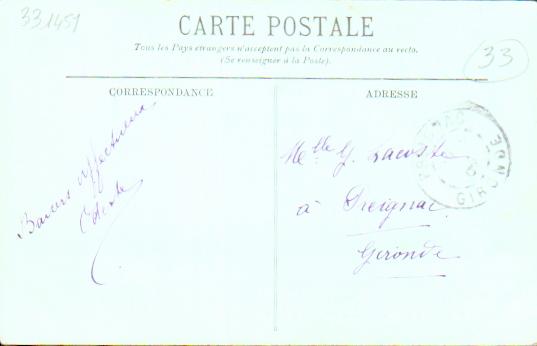 33 1451
CARTE POSTALE
Tous les Pays étrangers n'acceptent pas la Correspondance au recto.
(Se renseigner à la Poste).
33
CORRESPONDANCE
ADRESSE
Baisers affectueux
Melle G. Lacoste
à Preignac
Gironde
GIRONDE